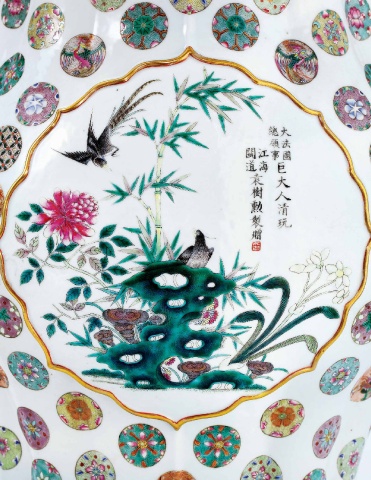 大法國
總領事
巨大人清玩
江海
關道
袁樹勳製贈